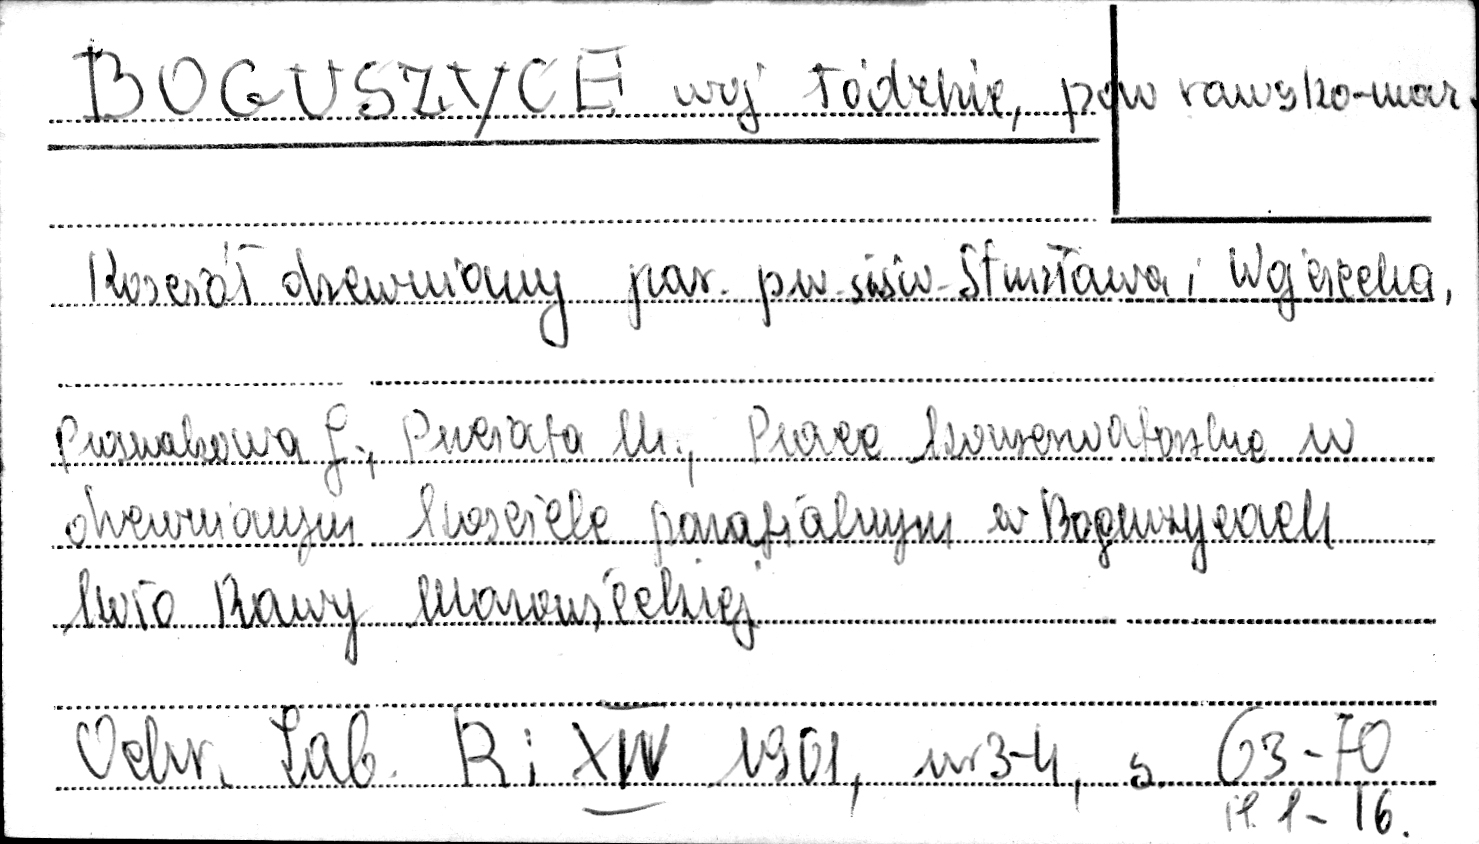 BOGUSZYCE woj łódzkie, pow rawsko-maz.
Kościół drewniany par. pw. śśw. Stanisława i Wojciecha,
J., Pręczła M., Prace konserwatorskie w
drewnianym kościele parafialnym w Boguszycach
koło Rawy Mazowieckiej
Ochr. Zab. R: XIV 1961, nr 3-4, s. 63-70
il. 1-16.